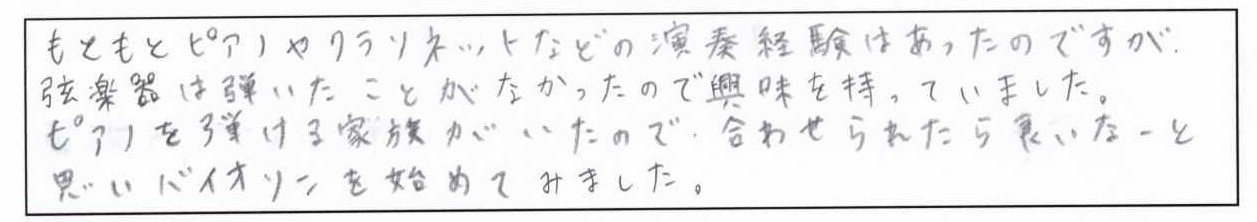 もともとピアノやクラリネットなどの演奏経験はあったのですが、
弦楽器は弾いたことがなかったので興味を持っていました。
ピアノを弾ける家族がいたので、合わせられたら良いなーと
思いバイオリンを始めてみました。